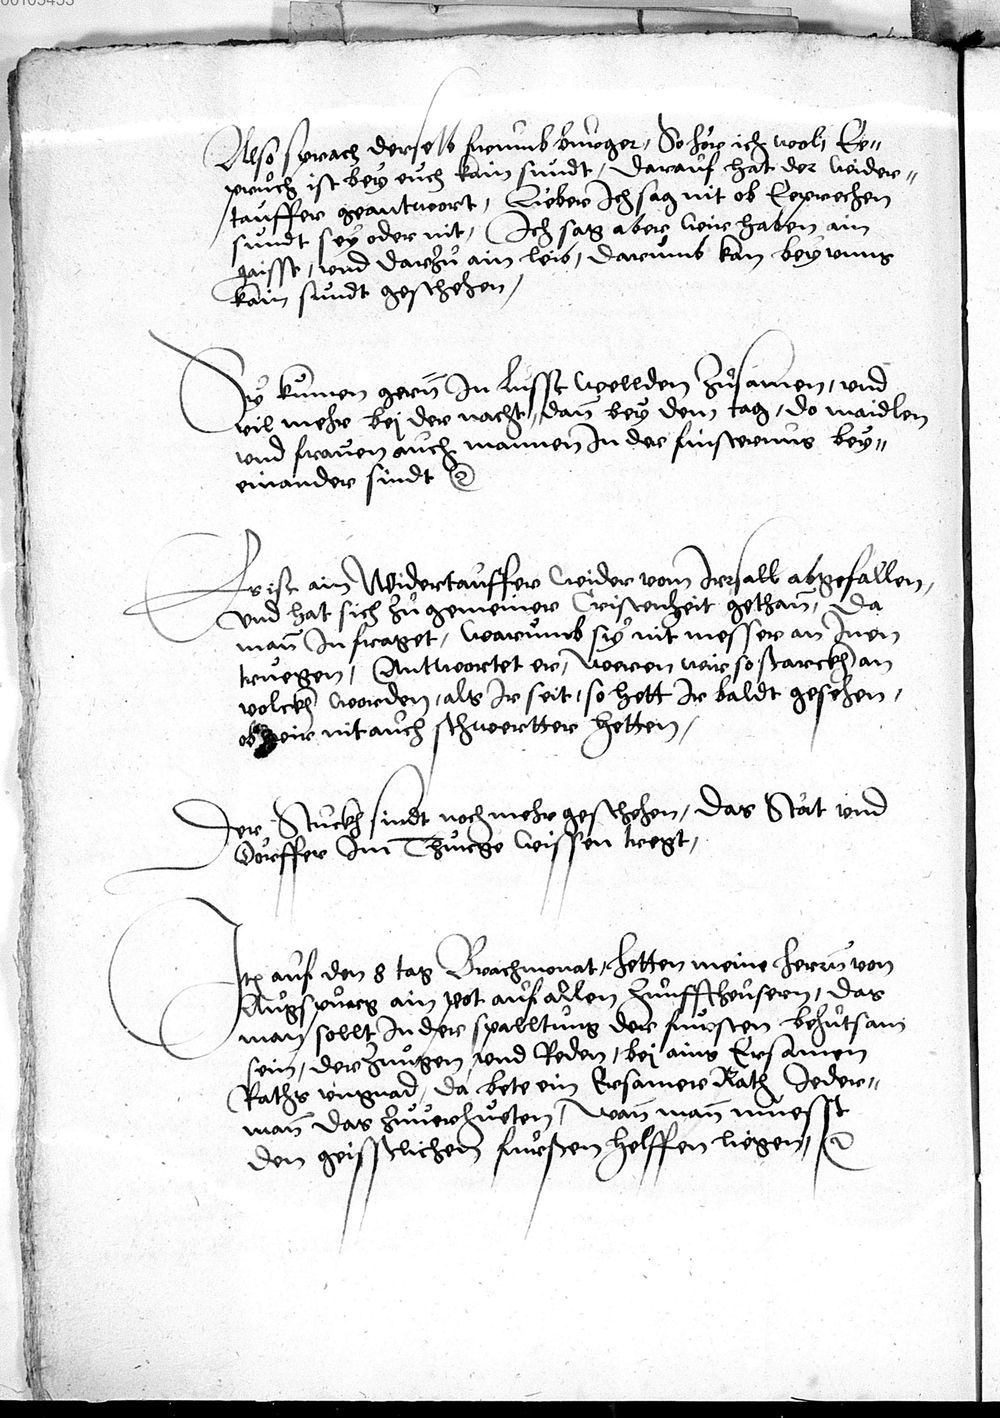 00103453
Also sprach derselb frumb burger, So hör ich wol, Ee=
pruch ist bey euch kain sundt, darauf hat der wider=
tauffer geantwort, Lieber Ich sag nit ob Eeprechen
sundt sey oder nit, Ich sag aber wir haben ain
gaisst, und darzu ain leib, darumb kan bey unns
kain sundt geschehen,
Sy kumen gern In Lusst wellden zusamen, und
vil mehr bej der nacht, dan bey dem tag, do maidlen
und frauen auch mannen In der finsternus bey=
einander sindt
Es ist ain Widertauffer wider vom Irrsall abgefallen,
und hat sich zu gemeiner Cristenheit gethan, Da
man In fraget, warumb sy nit messer an Inen
truegen, Antwortet er, weren wir so starckh an
volckh worden, als Ir seit, so hett Ir baldt gesehen,
ob wir nit auch schwertter hetten,
Der Stuckh sindt noch mehr geschehen, das Stat und
Dörffer Im Thurge wissen tregt,
Itz auf den 8 tag Brachmonat, hetten meine herrn von
Augspurg ain pot auf allen Zunfftheusern, das
man sollt In der spalltung der fürsten behutsam
sein, der Zungen und Reden, bej ains Ersamen
Raths ungnad, da bete ein Ersamer Rath Jeder=
man das zuverhueten, wan man muesst
den geisstlichen fursten helffen liegen,